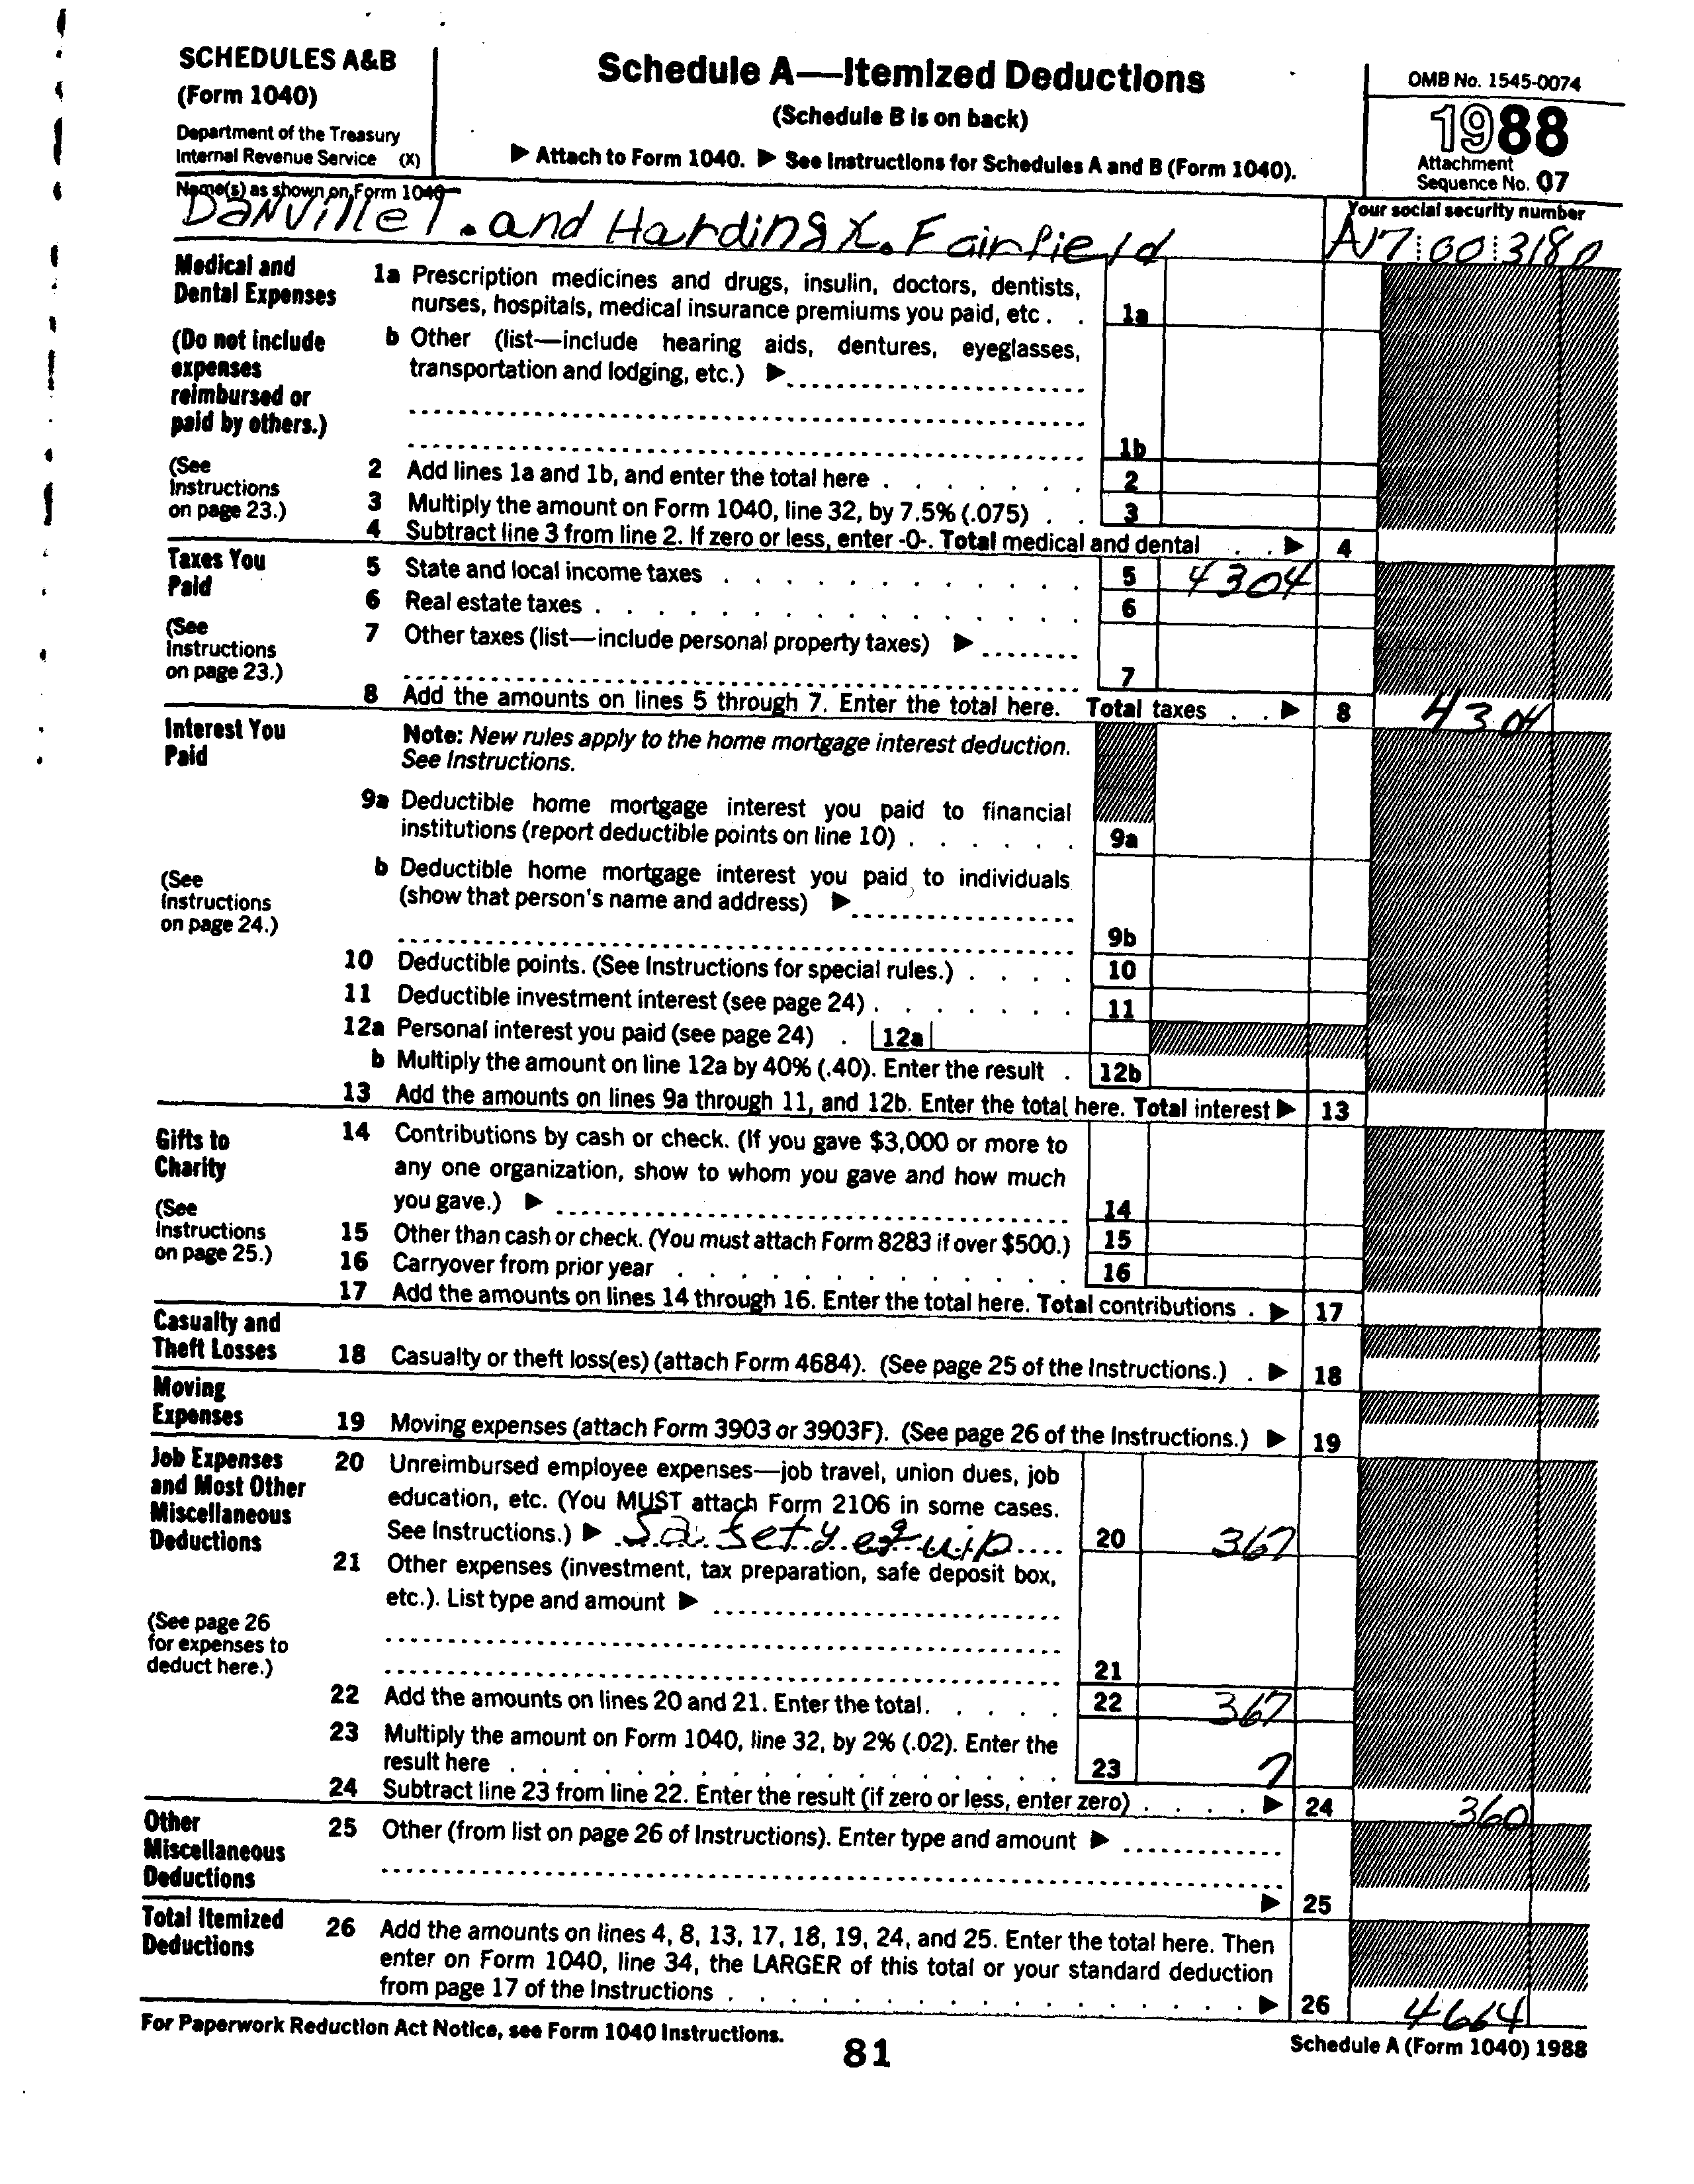 SCHEDULES A&B
(Form 1040)
Department of the Treasury
Internal Revenue Service (X)
Schedule A—Itemized Deductions
(Schedule B is on back)
▶ Attach to Form 1040. ▶ See Instructions for Schedules A and B (Form 1040).
OMB No. 1545-0074
1988
Attachment
Sequence No. 07
Name(s) as shown on Form 1040
Danville T. and Harding X. Fairfield
Your social security number
A17 00 3180
Medical and
Dental Expenses
(Do not include
expenses
reimbursed or
paid by others.)
(See
Instructions
on page 23.)
1a Prescription medicines and drugs, insulin, doctors, dentists,
nurses, hospitals, medical insurance premiums you paid, etc . . 1a
b Other (list—include hearing aids, dentures, eyeglasses,
transportation and lodging, etc.) ▶
1b
2 Add lines 1a and 1b, and enter the total here . . . . . . . 2
3 Multiply the amount on Form 1040, line 32, by 7.5% (.075) . . 3
4 Subtract line 3 from line 2. If zero or less, enter -0-. Total medical and dental . . ▶ 4
Taxes You
Paid
(See
Instructions
on page 23.)
5 State and local income taxes . . . . . . . . . . . . 5 4304
6 Real estate taxes . . . . . . . . . . . . . . . 6
7 Other taxes (list—include personal property taxes) ▶
7
8 Add the amounts on lines 5 through 7. Enter the total here. Total taxes . . ▶ 8 4304
Interest You
Paid
(See
Instructions
on page 24.)
Note: New rules apply to the home mortgage interest deduction.
See Instructions.
9a Deductible home mortgage interest you paid to financial
institutions (report deductible points on line 10) . . . . . . 9a
b Deductible home mortgage interest you paid to individuals
(show that person's name and address) ▶
9b
10 Deductible points. (See Instructions for special rules.) . . . . 10
11 Deductible investment interest (see page 24) . . . . . . . 11
12a Personal interest you paid (see page 24) . 12a
b Multiply the amount on line 12a by 40% (.40). Enter the result . 12b
13 Add the amounts on lines 9a through 11, and 12b. Enter the total here. Total interest ▶ 13
Gifts to
Charity
(See
Instructions
on page 25.)
14 Contributions by cash or check. (If you gave $3,000 or more to
any one organization, show to whom you gave and how much
you gave.) ▶ 14
15 Other than cash or check. (You must attach Form 8283 if over $500.) 15
16 Carryover from prior year . . . . . . . . . . . . . 16
17 Add the amounts on lines 14 through 16. Enter the total here. Total contributions . ▶ 17
Casualty and
Theft Losses
18 Casualty or theft loss(es) (attach Form 4684). (See page 25 of the Instructions.) . ▶ 18
Moving
Expenses
19 Moving expenses (attach Form 3903 or 3903F). (See page 26 of the Instructions.) ▶ 19
Job Expenses
and Most Other
Miscellaneous
Deductions
(See page 26
for expenses to
deduct here.)
20 Unreimbursed employee expenses—job travel, union dues, job
education, etc. (You MUST attach Form 2106 in some cases.
See Instructions.) ▶ Safety equip 20 367
21 Other expenses (investment, tax preparation, safe deposit box,
etc.). List type and amount ▶
21
22 Add the amounts on lines 20 and 21. Enter the total. . . . . . 22 367
23 Multiply the amount on Form 1040, line 32, by 2% (.02). Enter the
result here . . . . . . . . . . . . . . . . . 23 7
24 Subtract line 23 from line 22. Enter the result (if zero or less, enter zero) . . . . ▶ 24 360
Other
Miscellaneous
Deductions
25 Other (from list on page 26 of Instructions). Enter type and amount ▶
▶ 25
Total Itemized
Deductions
26 Add the amounts on lines 4, 8, 13, 17, 18, 19, 24, and 25. Enter the total here. Then
enter on Form 1040, line 34, the LARGER of this total or your standard deduction
from page 17 of the Instructions . . . . . . . . . . . . . . . . ▶ 26 4664
For Paperwork Reduction Act Notice, see Form 1040 Instructions.
81
Schedule A (Form 1040) 1988